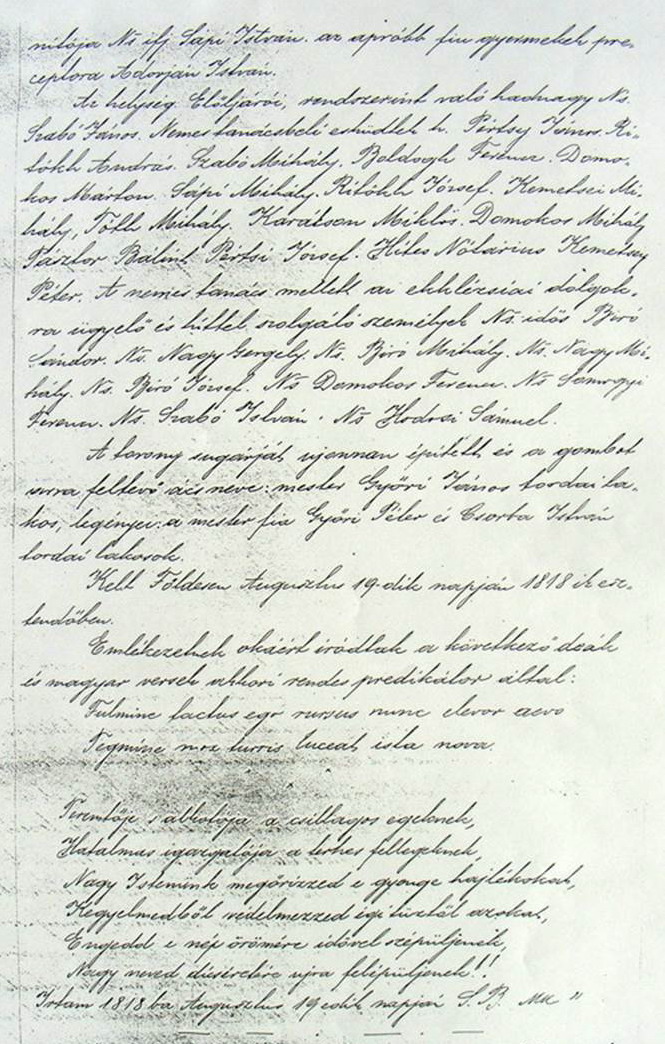 nitója Ns ifj Sápi István. az apróbb fiu gyermekek pre-
ceptora Adorján István.
Az helység Előljárói, rendszerint való hadnagy Ns.
Szabó János. Nemes tanácsbeli esküdtek h. Pértsy János. Ri-
tókh András. Szabó Mihály. Boldogh Ferencz. Domo-
kos Márton. Sápi Mihály. Ritókh Jósef. Kemetsei Mi-
hály, Tóth Mihály. Karátson Miklós. Domokos Mihály
Pásztor Bálint Pértsi Jósef. Hites Nótárius Kemetsey
Péter. A nemes tanács mellett az ekklézsiai dolgok-
ra ügyelő és hittel szolgáló személyek Ns. idős Biró
Sándor. Ns. Nagy Gergely. Ns. Biró Mihály. Ns. Nagy Mi-
hály. Ns. Biró Jósef. Ns Domokos Ferencz. Ns Somogyi
Ferencz. Ns. Szabó István. Ns Hodosi Sámuel.
A torony sugárját ujonnan épitett és a gombot
arra feltevő ács neve: mester Győri János tordai la-
kos, legényei: a mester fia Győri Péter és Csorba István
tordai lakosok.
Kelt Földesen Augusztus 19-dik napján 1818 ik esz-
tendőben.
Emlékezetnek okáért iródtak a következő deák
és magyar versek akkori rendes predikátor által:
Fulmine tactus ego rursus nunc elevor aevo
Tegmine mox turris luceat ista nova.
Teremtője s alkotója a csillagos egeknek,
Hatalmas igazgatója a terhes fellegeknek,
Nagy Istenünk megőrizzed e gyenge hajlékokat,
Kegyelmedből védelmezzed égi tüztől azokat,
Engedd e nép örömére idővel szépüljenek,
Nagy neved dicséretére ujra felépüljenek!!
Irtam 1818.ba Augusztus 19edik napján S. B. mk "